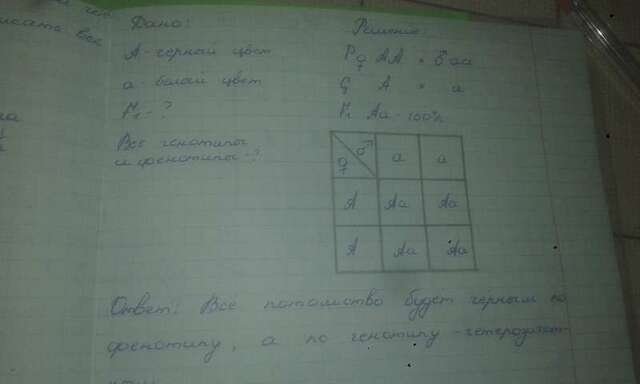 писать все
Дано:
А - черный цвет
а - белый цвет
F₁ - ?
Все генотипы
и фенотипы - ?
Решение:
P ♀ AA × ♂ aa
G A × a
F₁ Aa - 100%
♀ ♂ a a
A Aa Aa
A Aa Aa
Ответ: Всё потомство будет черным по
фенотипу, а по генотипу - гетерозигот-